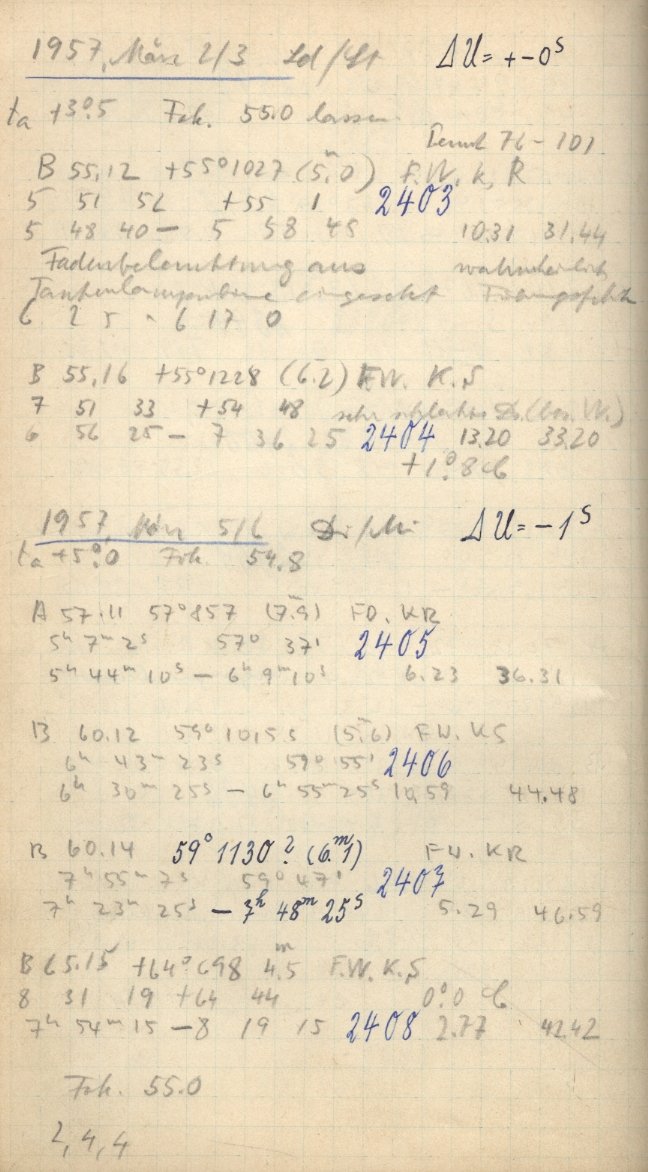 1957, März 2/3 Sd/St ΔU = +-0ˢ
ta +3°.5 Fok. 55.0 lassen
76 - 101
B 55.12 +55°1027 (5.ᵐ0) F.W. K, R
5 51 56 +55 1 2403
5 48 40 - 5 58 45 10.31 31.44
Fadenbeleuchtung aus wahrscheinlich
Taschenlampenbirne eingesetzt
6 2 5 - 6 17 0
B 55.16 +55°1228 (6.2) F.W. K.S
7 51 33 +54 48 sehr schlechte
6 56 25 - 7 36 25 2404 13.20 33.20
+1°.8
1957, März 5/6 Di/Mi ΔU = -1ˢ
ta +5°.0 Fok. 54.8
A 57.11 57°857 (7.ᵐ9) FO. KR
5ʰ 7ᵐ 2ˢ 57° 37' 2405
5ʰ 44ᵐ 10ˢ - 6ʰ 9ᵐ 10ˢ 6.23 36.31
B 60.12 59° 1015 (5.ᵐ6) F.W. KS
6ʰ 43ᵐ 23ˢ 59° 55' 2406
6ʰ 30ᵐ 25ˢ - 6ʰ 55ᵐ 25ˢ 10.59 44.48
B 60.14 59°1130? (6.ᵐ1) F.W. KR
7ʰ 55ᵐ 7ˢ 59° 47' 2407
7ʰ 23ᵐ 25ˢ - 7ʰ 48ᵐ 25ˢ 5.29 46.59
B 65.15 +64°698 4.ᵐ5 F.W. K.S
8 31 19 +64 44 0°.0
7ʰ 54ᵐ 15 - 8 19 15 2408 2.77 42.42
Fok. 55.0
2, 4, 4